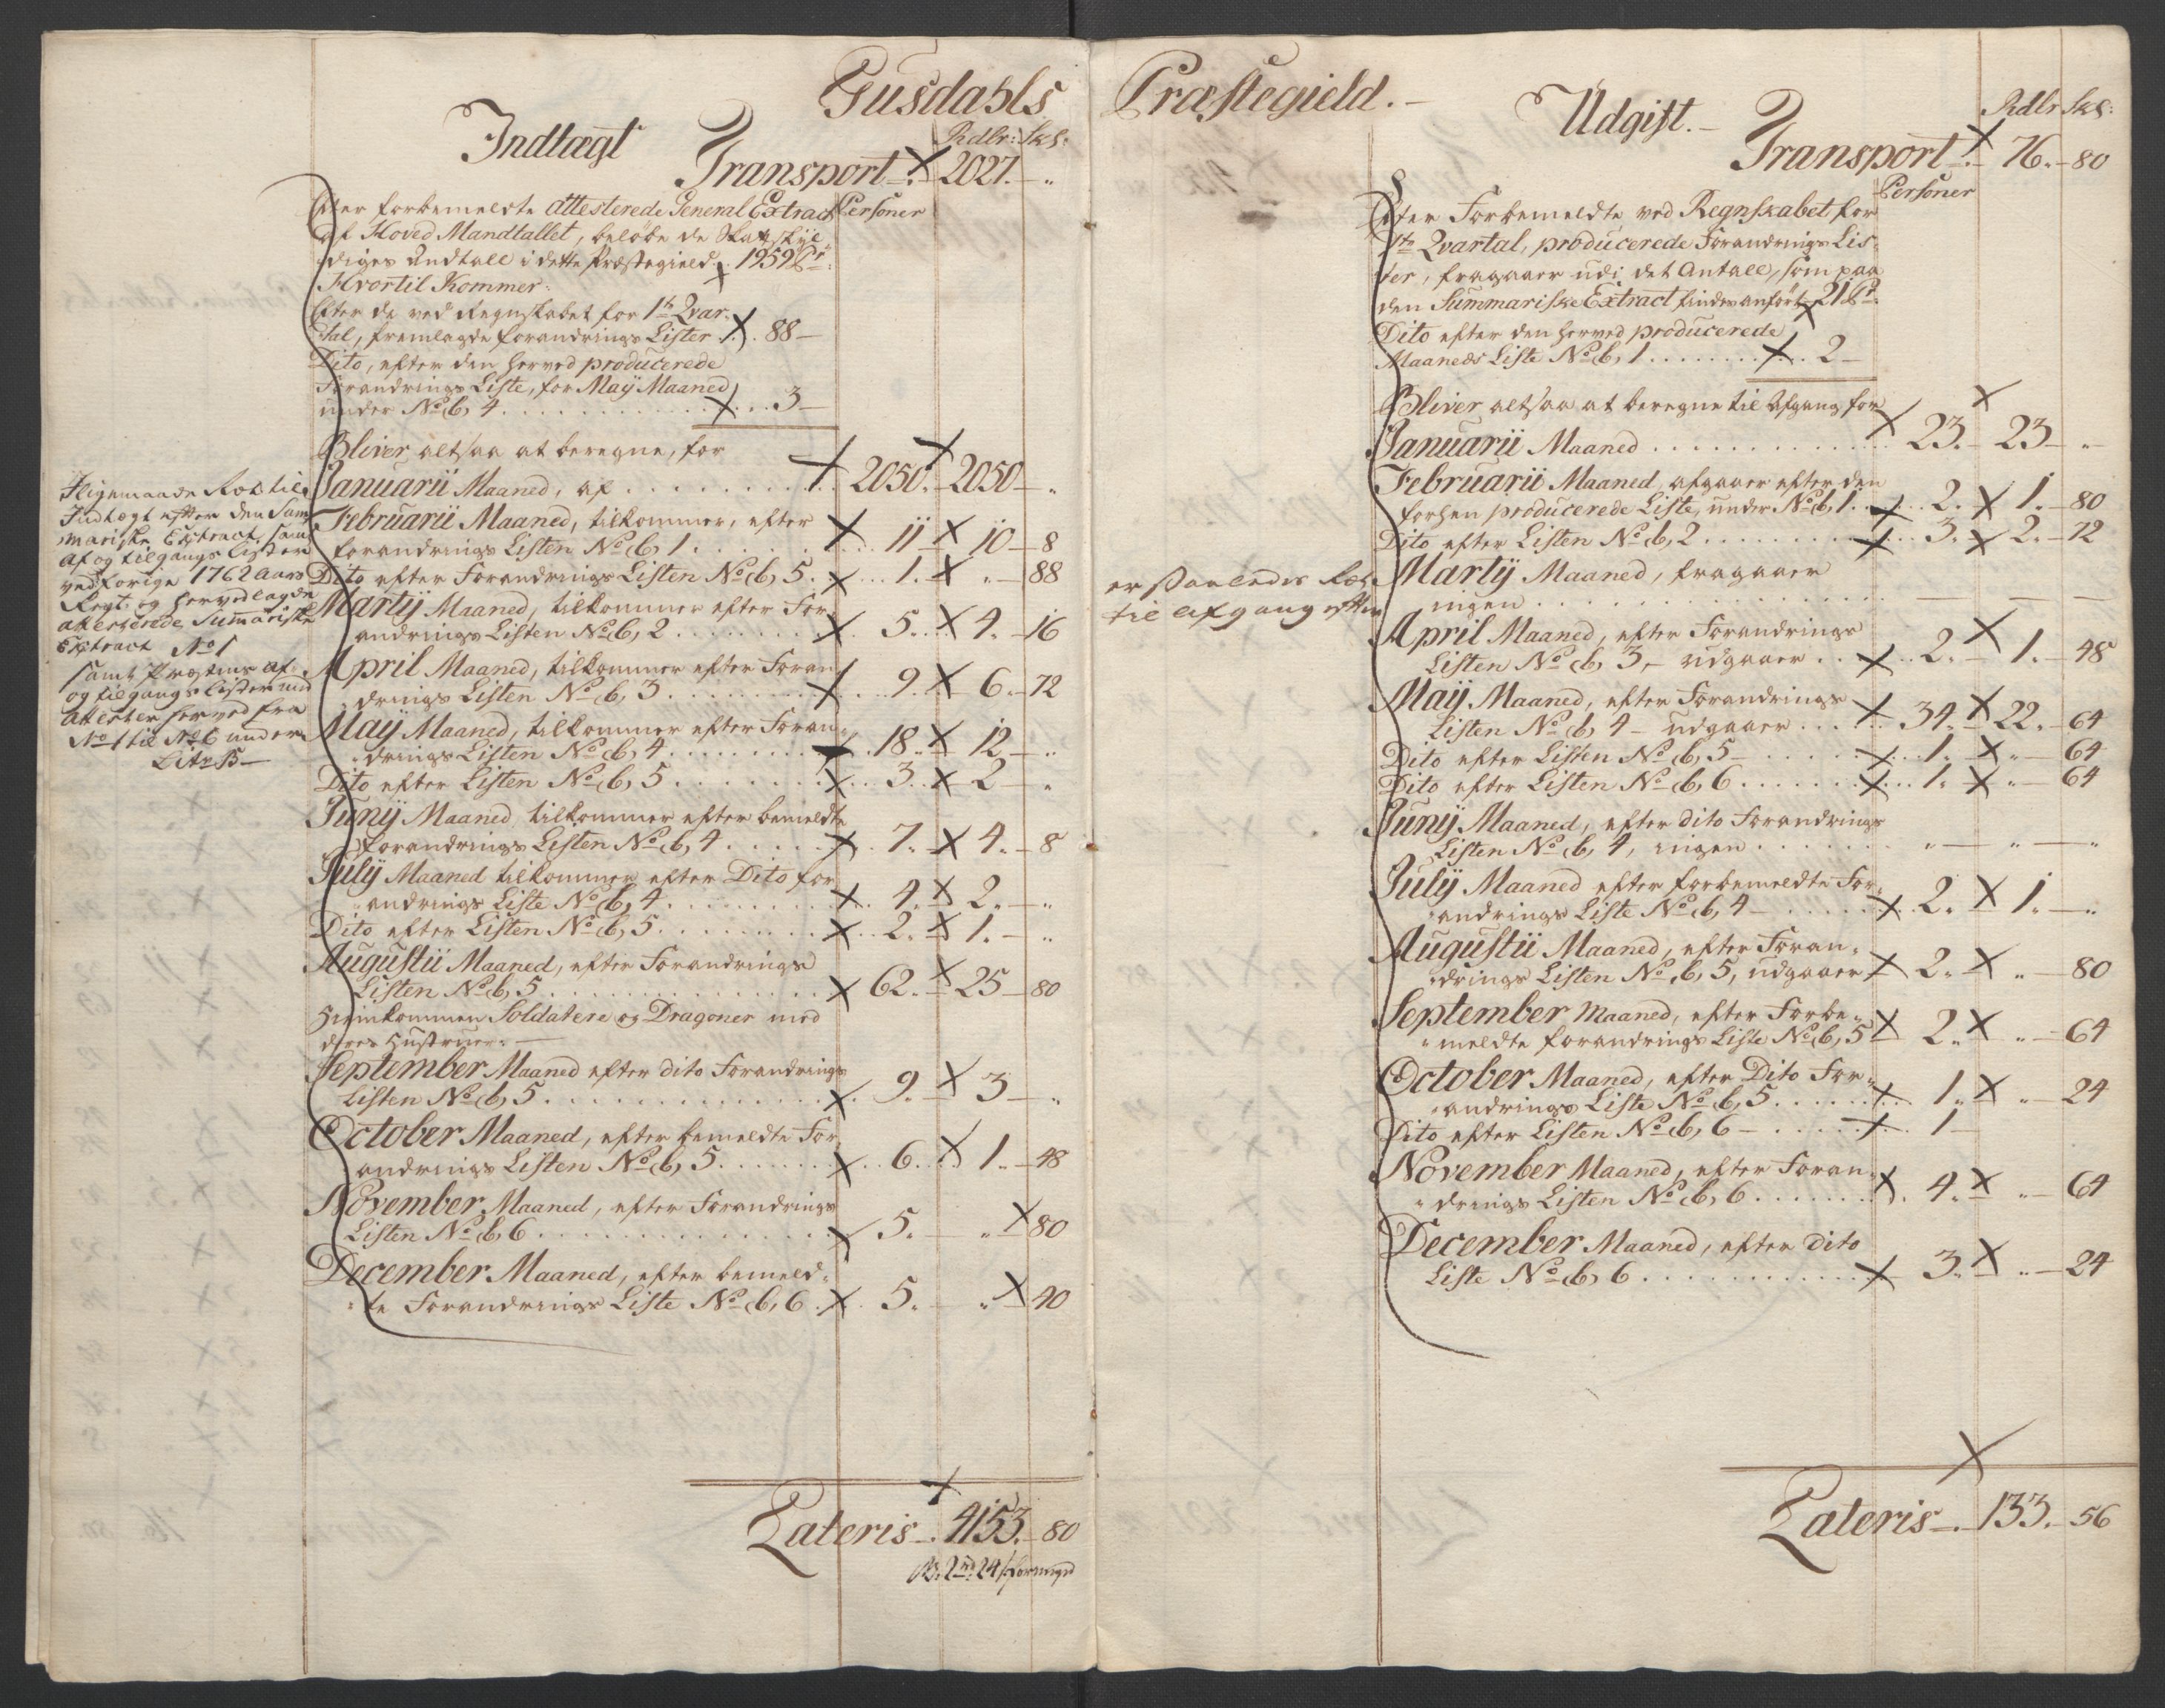 Gusdahls
Indtægt
Rdlr: Sk:
Transport . 2027. — "
Efter forbemeldte attesterede General Extract Personer
af Hoved Mandtallet, beløbe de Skatskyl-
diges Andtall i dette Præstegield. 1959 Pr:
Hvortil Kommer:
Efter de ved Regnskabet for 1te Qvar-
tal, fremlagde forandrings Lister . 88 —
Dito, efter den herved producerede
Forandrings Liste, for Maÿ Maaned
under No b, 4 . . . 3 —
Bliver altsaa at beregne, for
Januarii Maaned, af . . . 2050. — 2050 — "
Februarii Maaned, tilkommer, efter
forandrings Listen No b, 1 . . . 11 — 10 — 8
Dito efter Forandrings Listen No b, 5 . . . 1. — " — 88
Martÿ Maaned, tilkommer efter For-
andrings Listen No b, 2 . . . 5. — 4. — 16
April Maaned, tilkommer efter Foran-
drings Listen No b, 3 . . . 9. — 6. — 72
Maÿ Maaned, tilkommer efter Foran-
drings Listen No b, 4 . . . 18. — 12 — "
Dito efter Listen No b, 5 . . . 3. — 2 — "
Junÿ Maaned tilkommer efter bemeldte
forandrings Listen No b, 4 . . . 7. — 4. — 8
Julÿ Maaned tilkommer efter Dito for-
andrings Liste No b, 4 . . . 4. — 2. — "
Dito efter Listen No b, 5 . . . 2. — 1. — "
Augustii Maaned, efter Forandrings
Listen No b, 5 . . . 62. — 25 — 80
Hiemkommen Soldatere og Dragoner med
deres Hustruer. —
September Maaned efter dito Forandrings
Listen No b, 5 . . . 9. — 3 — "
October Maaned, efter bemeldte For-
andrings Listen No b, 5 . . . 6. — 1. — 48
November Maaned, efter Forandrings
Listen No b, 6 . . . 5. — " — 80
December Maaned, efter bemeld-
te Forandrings Liste No b, 6 . . . 5. — " — 40
Lateris . 4153. — 80
2 rd 24 s
Indtægt efter den Sum-
mariske Extract, samt
af og tilgangs Lister
ved forige 1762 Aars
Regt. og hervedlagde
attesterede Summariske
Extract No 1
samt Præstens af-
og tilgangs Lister med
attester herved fra
No 1 til No 6 under
Litr B —
Præstegield. —
Udgift. —
Rdlr Sk:
Transport . 76. — 80
Personer
Efter Forbemeldte ved Regnskabet for
1te Qvartal, producerede Forandrings Lis-
ter, fragaaer udi det Antall, som paa
den Summariske Extract findes anført 21 Pr:
Dito efter den herved producerede
Maaneds Liste No b, 1 . . . 2 —
Bliver altsaa at beregne til Afgang for
Januarii Maaned . . . 23. — 23 — "
Februarii Maaned, afgaaer efter den
forhen producerede Liste, under No b, 1 . . . 2. — 1. — 80
Dito efter Listen No b, 2 . . . 3. — 2. — 72
Martÿ Maaned, fragaaer
ingen . . . — — —
April Maaned, efter Forandrings
Listen No b, 3, — udgaaer . . . 2. — 1. — 48
Maÿ Maaned, efter Forandrings
Listen No b, 4 — udgaaer . . . 34. — 22. — 64
Dito efter Listen No b, 5 — . . . 1. — " — 64
Dito efter Listen No b, 6 . . . 1. — " — 64
Junÿ Maaned, efter dito Forandrings
Listen No b, 4, ingen . . . " — " — "
Julÿ Maaned efter forbemeldte For-
andrings Liste No b, 4 — . . . 2. — 1. — "
Augustii Maaned, efter Foran-
drings Listen No b, 5, udgaaer 2. — " — 80
September Maaned, efter Forbe-
meldte forandrings Liste No b, 5 2. — " — 64
October Maaned, efter Dito For-
andrings Liste No b, 5 . . . 1. — " — 24
Dito efter Listen No b, 6 — . . . 1 —
November Maaned, efter Foran-
drings Listen No b, 6 . . . 4. — " — 64
December Maaned, efter dito
Liste No b, 6 . . . 3. — " — 24
Lateris . 133. — 56
er saaledes
til afgang efter